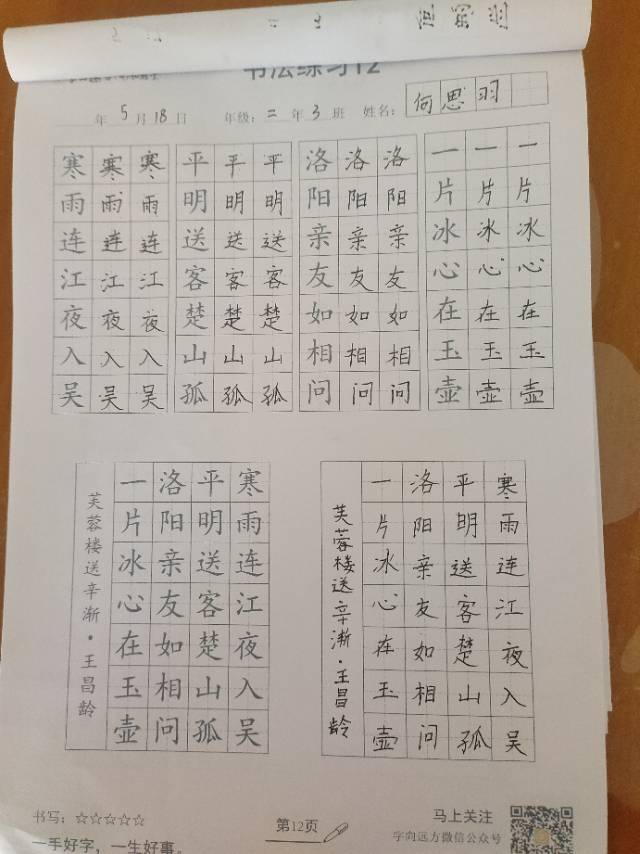 书法练习12
年 5 月 18 日 年级：二 年 3 班 姓名：何思羽
寒寒寒 平平平 洛洛洛 一一一
雨雨雨 明明明 阳阳阳 片片片
连连连 送送送 亲亲亲 冰冰冰
江江江 客客客 友友友 心心心
夜夜夜 楚楚楚 如如如 在在在
入入入 山山山 相相相 玉玉玉
吴吴吴 孤孤孤 问问问 壶壶壶
寒雨连江夜入吴
平明送客楚山孤
洛阳亲友如相问
一片冰心在玉壶
芙蓉楼送辛渐·王昌龄
寒雨连江夜入吴
平明送客楚山孤
洛阳亲友如相问
一片冰心在玉壶
芙蓉楼送辛渐·王昌龄
书写：☆☆☆☆☆
一手好字，一生好事。
第12页
马上关注
字向远方微信公众号